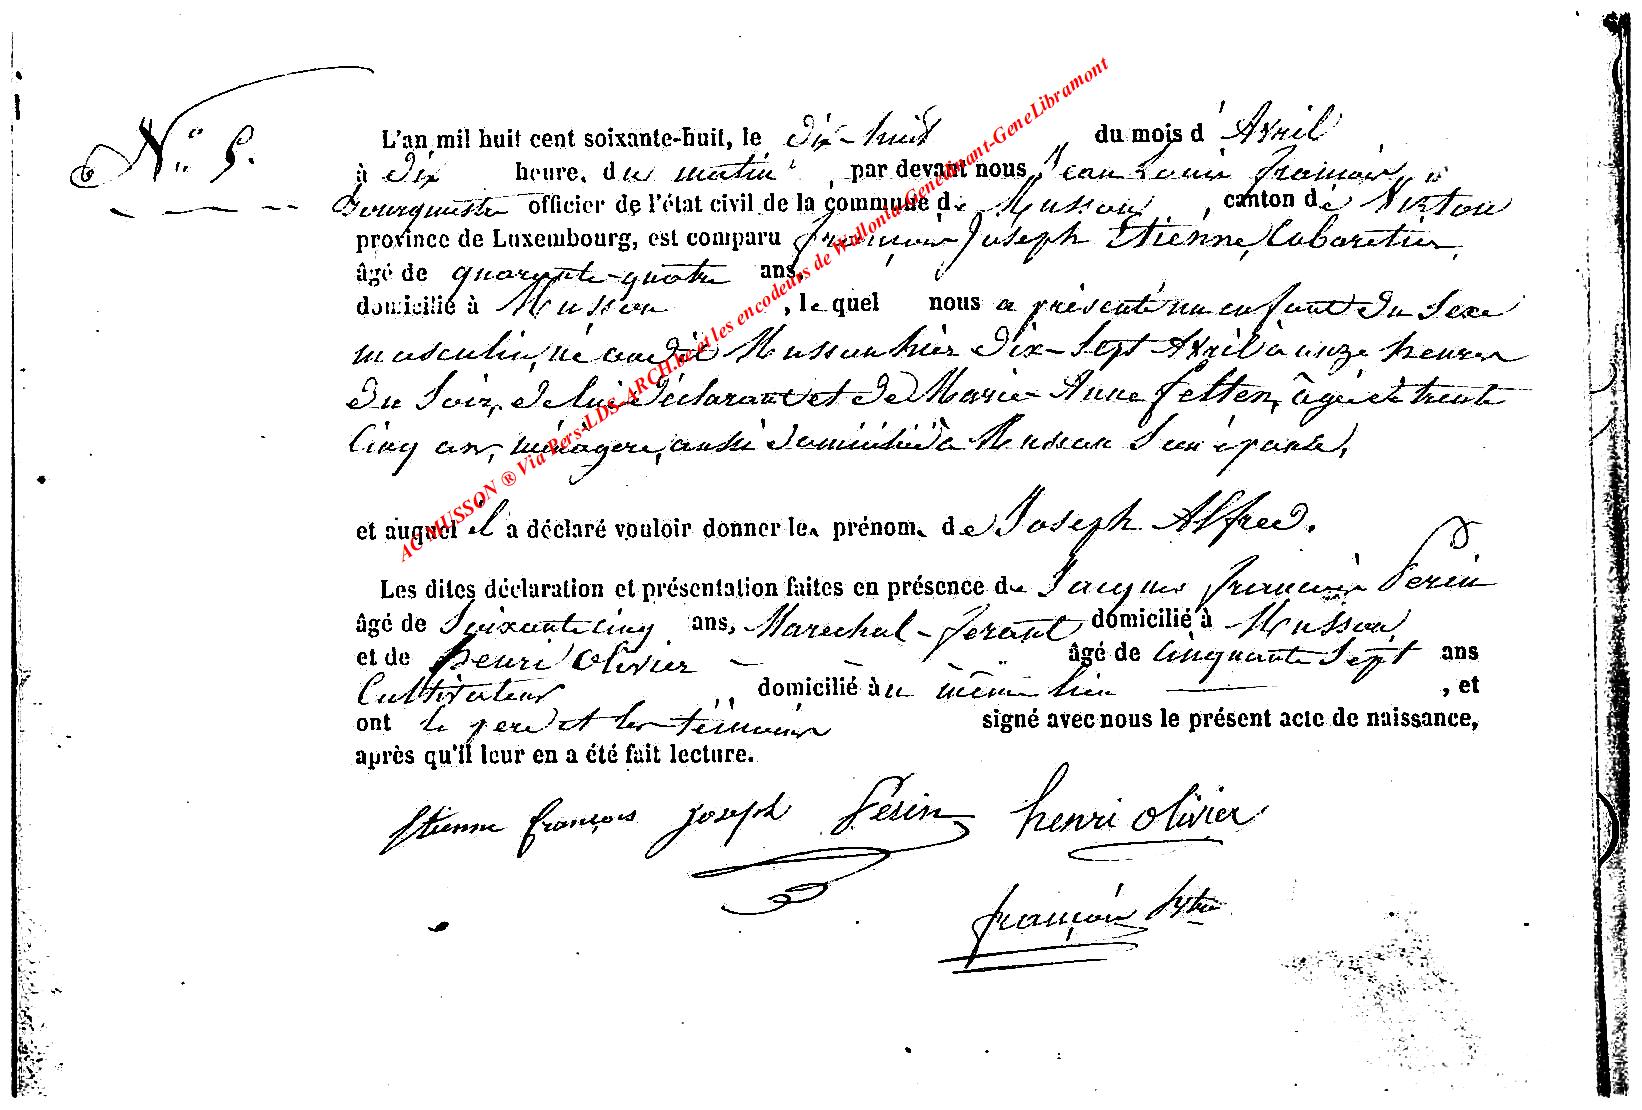 N° 5.
L'an mil huit cent soixante-huit, le dix-huit du mois d'Avril
à dix heure, du matin, par devant nous Jean Louis François,
Bourgmestre officier de l'état civil de la commune de Musson, canton de Virton
province de Luxembourg, est comparu François Joseph Etienne, Cabaretier,
âgé de quarante-quatre ans,
domicilié à Musson, le quel nous a présenté un enfant du Sexe
masculin, né audit Musson hier dix-Sept Avril à onze heures
du Soir, de lui déclarant et de Marie Anne Felten, âgée de trente
Cinq ans, ménagère, aussi domiciliée à Musson Son épouse,
et auquel il a déclaré vouloir donner les prénoms de Joseph Alfred.
Les dites déclaration et présentation faites en présence de Jacques François Perin
âgé de Soixante cinq ans, Marechal-ferant domicilié à Musson
et de henri Olivier âgé de Cinquante Sept ans
Cultivateur, domicilié au même lieu, et
ont le pere et les témoins signé avec nous le présent acte de naissance,
après qu'il leur en a été fait lecture.
Etienne françois joseph Perin henri olivier
françois
AC MUSSON ® Via Pers-LDS-ARCH.be et les encodeurs de Wallonia-Genedinant-GeneLibramont